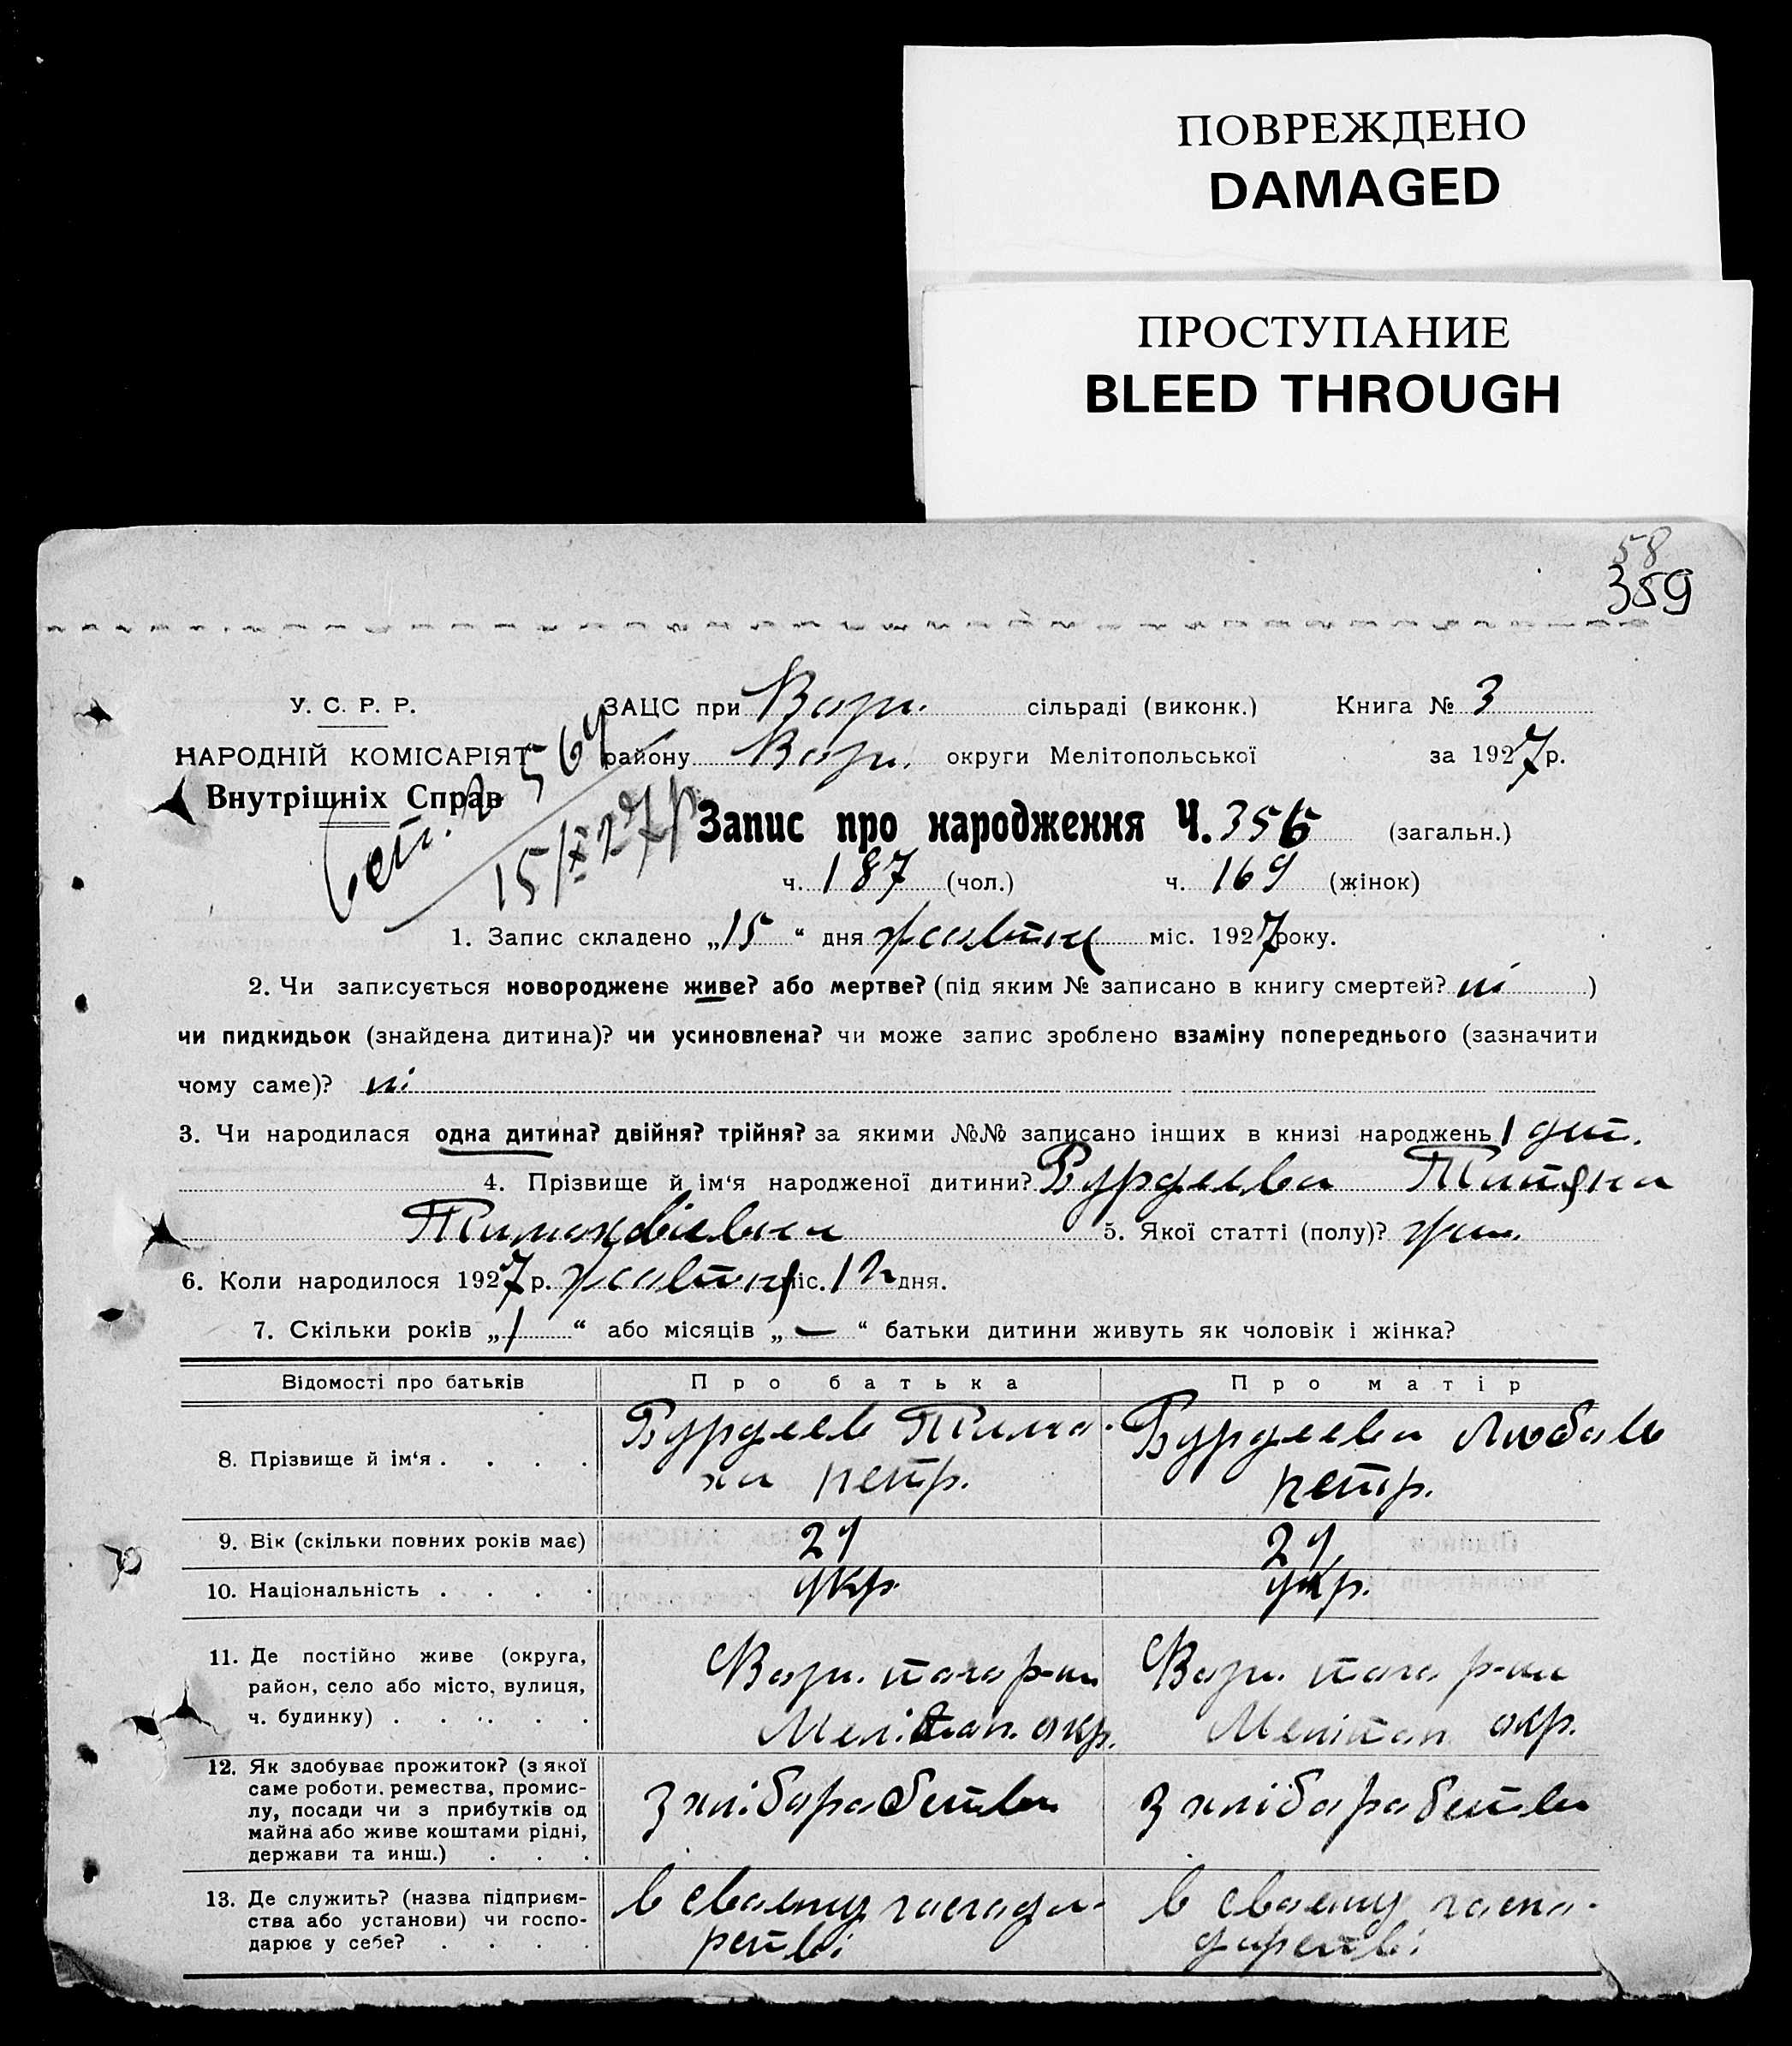 ПОВРЕЖДЕНО
DAMAGED
ПРОСТУПАНИЕ
BLEED THROUGH
58
359
У. С. Р. Р.
НАРОДНІЙ КОМІСАРІЯТ
Внутрішніх Справ
564
15/X 27 р
ЗАЦС при сільраді (виконк.) Книга № 3
району округи Мелітопольської за 1927 р.
Запис про народження Ч. 356 (загальн.)
ч. 187 (чол.) ч. 169 (жінок)
1. Запис складено „15“ дня жовтня міс. 1927 року.
2. Чи записується новороджене живе? або мертве? (під яким № записано в книгу смертей? ні )
чи пидкидьок (знайдена дитина)? чи усиновлена? чи може запис зроблено взаміну попереднього (зазначити
чому саме)? ні
3. Чи народилася одна дитина? двійня? трійня? за якими №№ записано інщих в книзі народжень 1 дит.
4. Прізвище й ім‘я народженої дитини? Бурдеева Татяна
5. Якої статті (полу)? жін.
6. Коли народилося 1927 р. жовтня міс. 12 дня.
7. Скільки років „1“ або місяців „—“ батьки дитини живуть як чоловік і жінка?
Відомості про батьків Про батька Про матір
8. Прізвище й ім‘я . . . .
Бурдеев Тимо-
ха петр.
Бурдеева Любовь
петр.
9. Вік (скільки повних років має)
10. Національність . . . . укр. укр.
11. Де постійно живе (округа,
район, село або місто, вулиця,
ч. будинку) . . . . .
того р-на
Мелітоп. окр.
того р-на
Мелітоп. окр.
12. Як здобуває прожиток? (з якої
саме роботи, ремества, промис-
лу, посади чи з прибутків од
майна або живе коштами рідні,
держави та инш.) . . .
З хліборобства
З хліборобства
13. Де служить? (назва підприєм-
ства або установи) чи госпо-
дарює у себе? . . . .
в своєму господа-
рстві
в своєму госпо-
дарстві